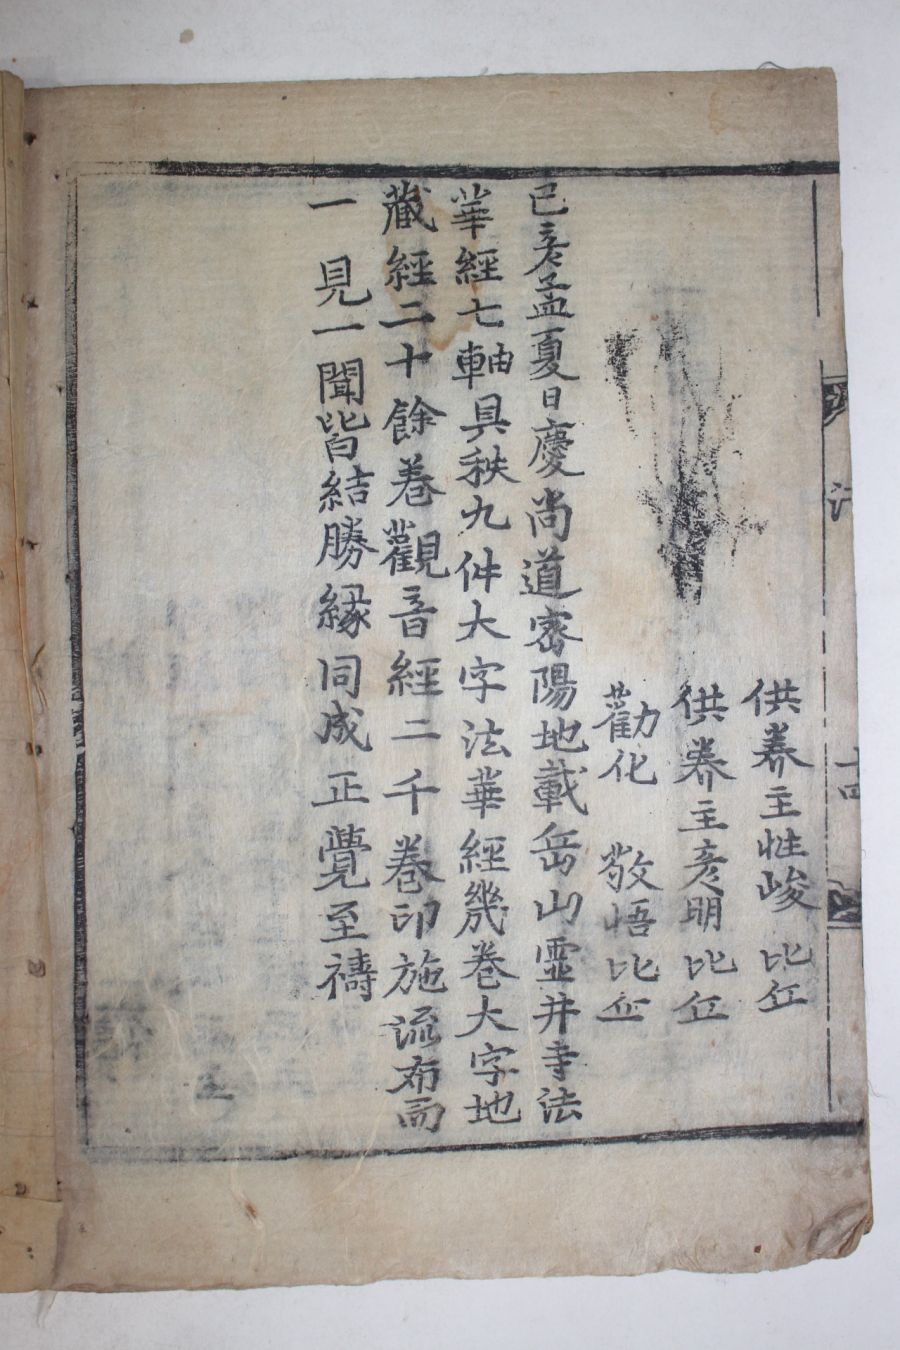 供養主性峻 比丘
供養主彦明 比丘
勸化 敬悟比丘
已亥孟夏日慶尚道密陽地載岳山靈井寺法
華經七軸具秩九件大字法華經幾卷大字地
藏經二十餘卷觀音經二千卷印施流布而
一見一聞皆結勝緣同成正覺至禱